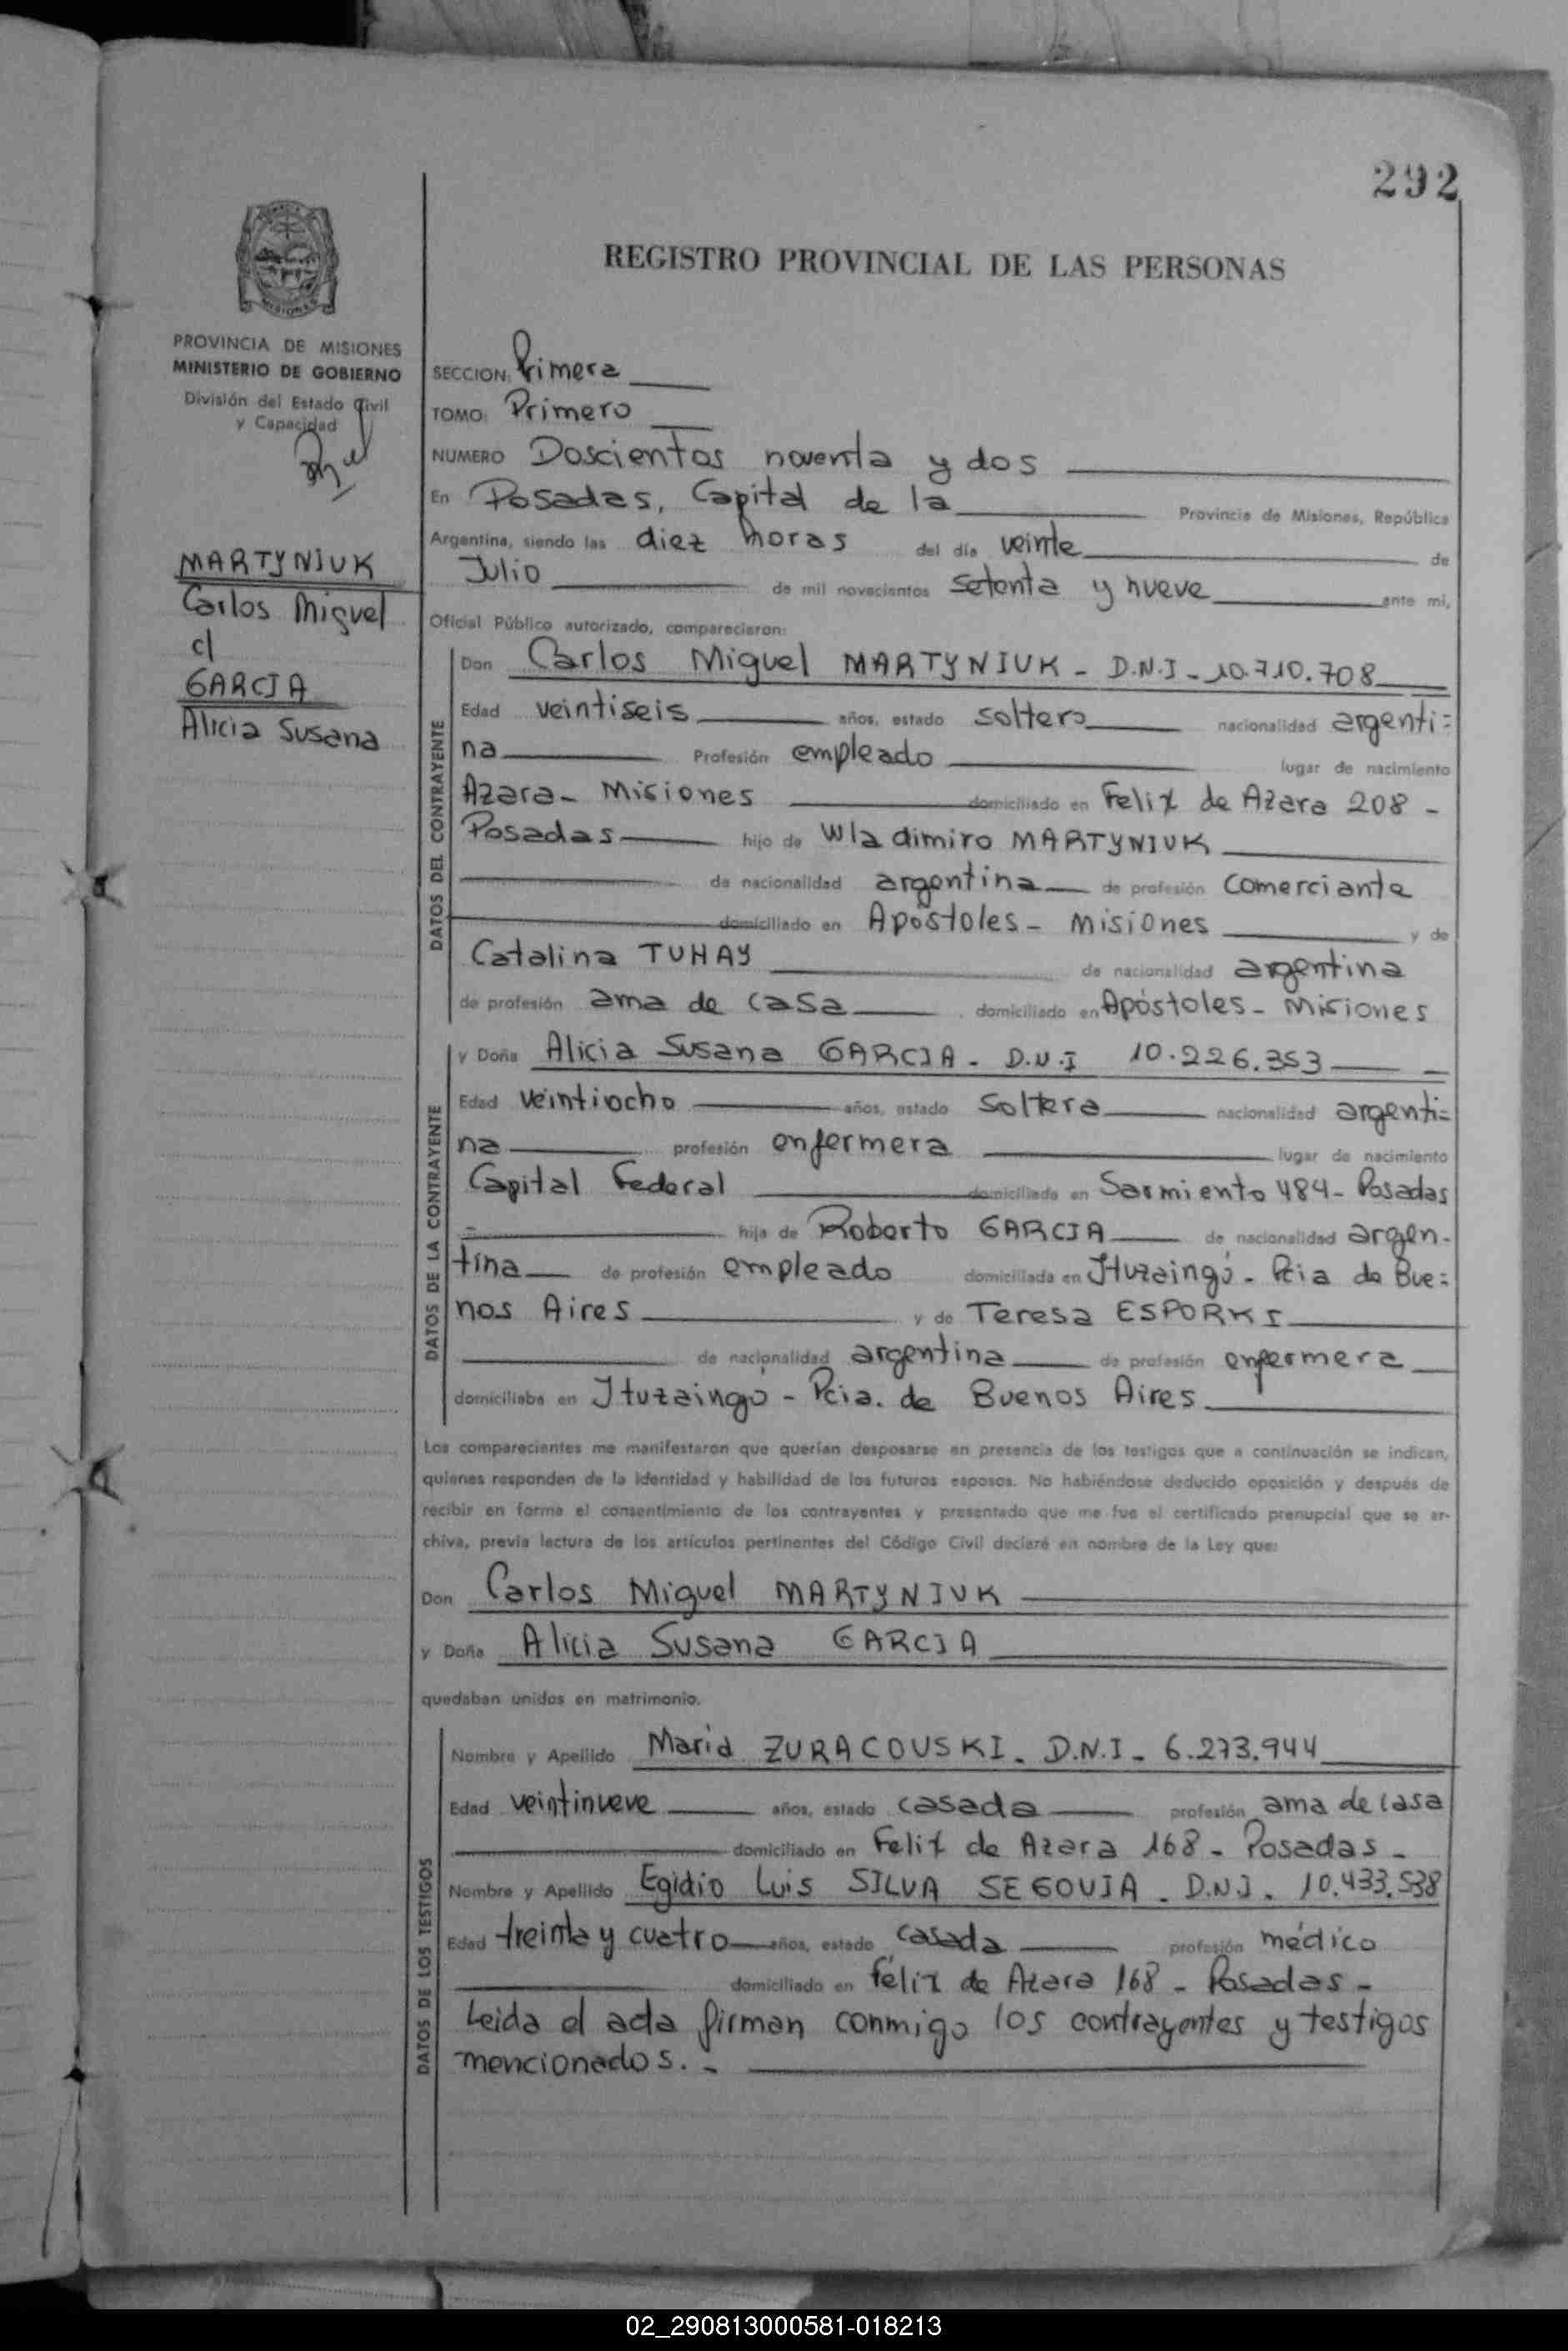 292
REGISTRO PROVINCIAL DE LAS PERSONAS
MISIONES
PROVINCIA DE MISIONES
MINISTERIO DE GOBIERNO
División del Estado Civil
y Capacidad
MARTYNIUK
Carlos Miguel
c/
GARCIA
Alicia Susana
SECCION: Primera
TOMO: Primero
NUMERO Doscientos noventa y dos
En Posadas, Capital de la Provincia de Misiones, República
Argentina, siendo las diez horas del día veinte de
Julio de mil novecientos setenta y nueve ante mi,
Oficial Público autorizado, comparecieron:
DATOS DEL CONTRAYENTE
Don Carlos Miguel MARTYNIUK - D.N.I - 10.710.708
Edad veintiseis años, estado soltero nacionalidad argenti=
na Profesión empleado lugar de nacimiento
Azara - Misiones domiciliado en Felix de Azara 208 -
Posadas hijo de Wladimiro MARTYNIUK
de nacionalidad argentina de profesión comerciante
domiciliado en Apóstoles - Misiones y de
Catalina TUHAY de nacionalidad argentina
de profesión ama de casa domiciliado en Apóstoles - Misiones
DATOS DE LA CONTRAYENTE
y Doña Alicia Susana GARCIA - D.N.I 10.226.353
Edad veintiocho años, estado soltera nacionalidad argenti=
na profesión enfermera lugar de nacimiento
Capital Federal domiciliada en Sarmiento 484 - Posadas
hija de Roberto GARCIA de nacionalidad argen-
tina de profesión empleado domiciliada en Ituzaingó - Pcia de Bue=
nos Aires y de Teresa ESPORKI
de nacionalidad argentina de profesión enfermera
domiciliaba en Ituzaingó - Pcia. de Buenos Aires
Los comparecientes me manifestaron que querían desposarse en presencia de los testigos que a continuación se indican,
quienes responden de la identidad y habilidad de los futuros esposos. No habiéndose deducido oposición y después de
recibir en forma el consentimiento de los contrayentes y presentado que me fue el certificado prenupcial que se ar-
chiva, previa lectura de los artículos pertinentes del Código Civil declaré en nombre de la Ley que:
Don Carlos Miguel MARTYNIUK
y Doña Alicia Susana GARCIA
quedaban unidos en matrimonio.
DATOS DE LOS TESTIGOS
Nombre y Apellido Maria ZURACOUSKI - D.N.I - 6.273.944
Edad veintinueve años, estado casada profesión ama de casa
domiciliado en Felix de Azara 168 - Posadas -
Nombre y Apellido Egidio Luis SILVA SEGOVIA - D.N.I. 10.433.538
Edad treinta y cuatro años, estado casada profesión médico
domiciliado en félix de Azara 168 - Posadas -
Leida el acta firman conmigo los contrayentes y testigos
mencionados. -
02_290813000581-018213